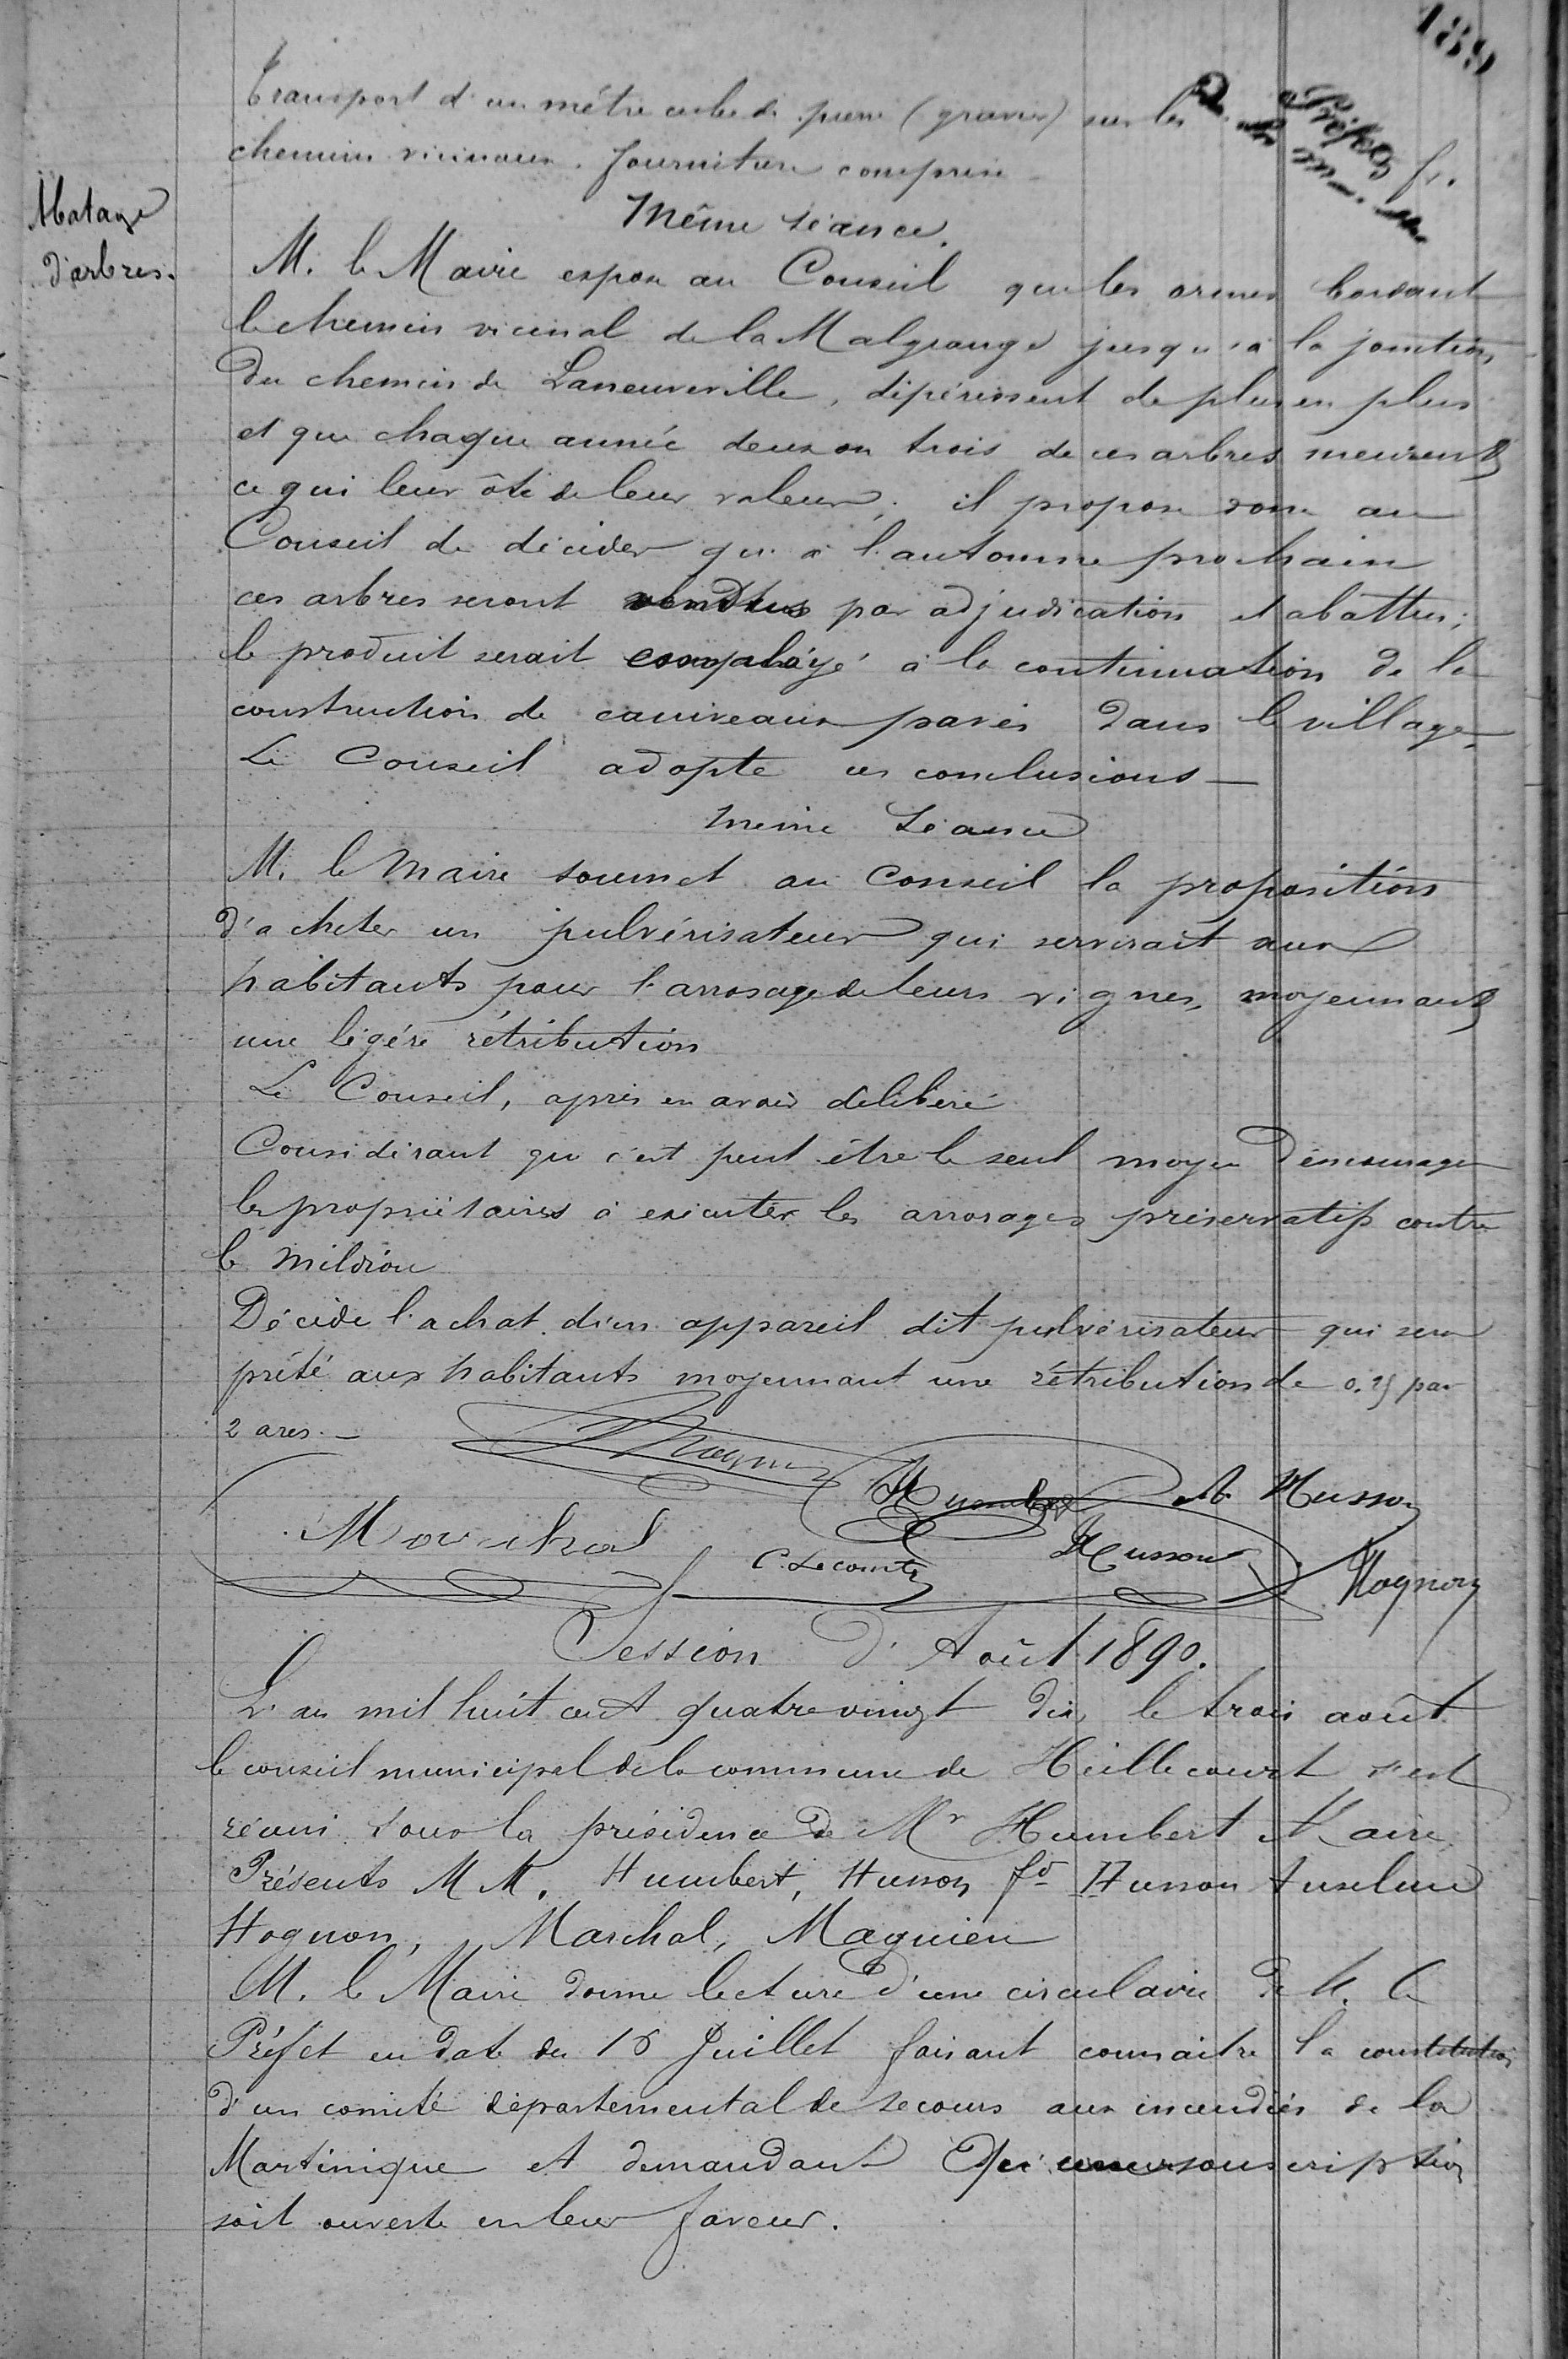 189
Transport d'un mètre cube de pierre (gravier) sur les
chemins vicinaux. fourniture comprise fr.
Même séance.
Abatage
d'arbres.
M. le Maire expose au Conseil que les ormes bordant
le chemin vicinal de la Malgrange jusqu'à la jonction
du chemin de Laneuveville, dépérissent de plus en plus
et que chaque année deux ou trois de ces arbres meurent
ce qui leur ôte de leur valeur; il propose donc au
Conseil de décider qu'à l'automne prochain
ces arbres seront vendus par adjudication et abattus;
le produit serait employé à la continuation de la
construction de caniveaux pavés dans le village.
Le Conseil adopte ces conclusions —
Même Séance
M. le Maire soumet au Conseil la proposition
d'acheter un pulvérisateur qui servirait aux
habitants pour l'arrosage de leurs vignes, moyennant
une légère rétribution
Le Conseil, après en avoir délibéré
Considérant que c'est peut être le seul moyen d'encourager
les propriétaires à exécuter les arrosages préservatifs contre
le mildiou
Décide l'achat d'un appareil dit pulvérisateur qui sera
prêté aux habitants moyennant une rétribution de 0.25 par
2 ares. —
Humbert A. Husson
Marchal C. Lecomte Husson Hognon
Session d'Août 1890.
L'an mil huit cent quatre vingt dix, le trois août
le conseil municipal de la commune de Heillecourt s'est
réuni sous la présidence de Mr Humbert Maire.
Présents MM. Humbert, Husson fd Husson Anselme
Hognon, Marchal, Magnien
M. le Maire donne lecture d'une circulaire de M. le
Préfet en date du 16 Juillet faisant connaître la constitution
d'un comité départemental de secours aux incendiés de la
Martinique et demandant qu'une souscription
soit ouverte en leur faveur.